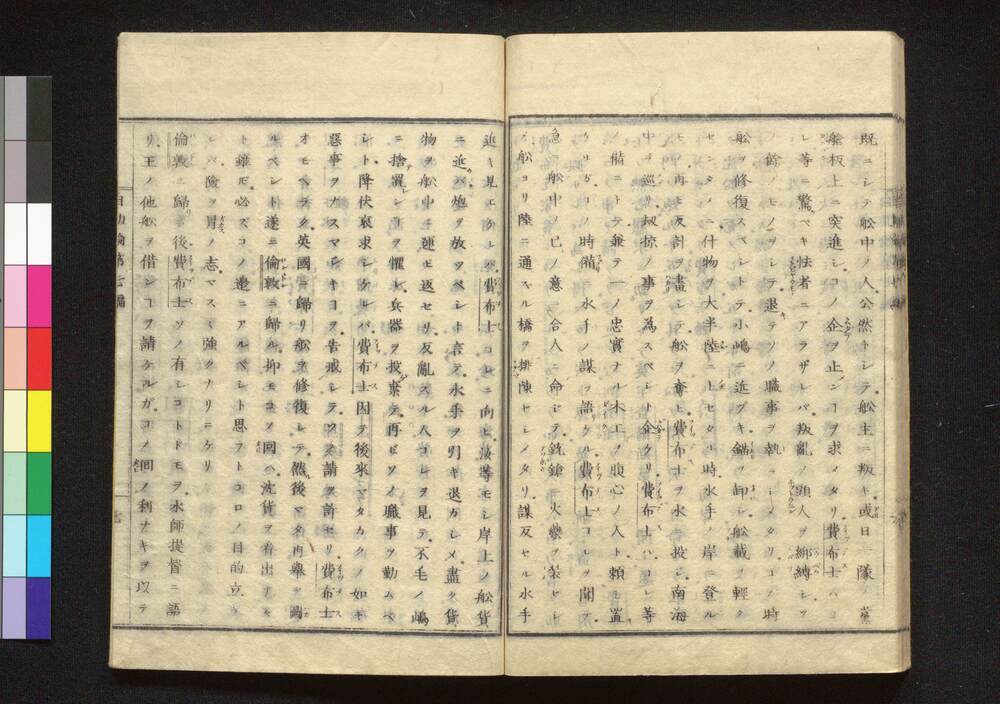 既ニシテ舩中ノ人公然トシテ舩主ニ叛キ或日一隊
舩板上ニ突進シコノ企ヲ止ンコヲ求メタリ費布士ハコ
レ等ニ驚ベキ怯者ニアラザレバ叛亂ノ頭人ヲ綁縛シソ
ノ餘ノモノヲシテ退テソノ職事ヲ執ラシメタリコノ時
舩ヲ修復スベシトテ小嶋ニ近ヅキ錨ヲ卸シ舩載ヲ輕ク
センタメニ什物ヲ大半陸ニ上セタリ時ニ水手ノ岸ニ登ル
モノ再ヒ反計ヲ畫シテ舩ヲ奪ヒ費布士ヲ水ニ投シ南海
中ヲ巡リ刼掠ノ事ヲ為スベシト企タリ費布士ハコレ等
ノ備ニトテ兼テ一ノ忠實ナル木工ノ腹心ノ人ト頼ミ置
ケルガコノ時備ニ水手ノ謀ヲ語ケリ費布士コレヲ聞テ
急ニ舩中ノ己ノ意ニ合人ニ命シテ銃鎗ニ火藥ヲ装セシヒ
ノ舩ヨリ陸ニ通スル橋ヲ排陳セシメタリ謀反セル水手
近キ見エケレバ費布士コレニ向ヒ汝等モシ岸上ノ舩貨
ニ近バ炮ヲ放ツベシト言テ水手ヲ引キ退カシメ盡ク貨
物ヲ舩中ニ運ヒ返セリ反亂スル人コレヲ見テ不毛ノ嶋
ニ捨置レンコヲ懼レ兵器ヲ投棄テ再ビソノ職事ヲ勤ムベ
シト降伏哀求シケルバ費布士因テ後來マタカクノ如キ
惡事ヲナスマジキヨヲ告戒シテソノ請ヲ許セリ費布士
オモヘラク英國ニ歸リ舩ヲ修復シテ然後マタ再舉ヲ圖
ルベシト遂ニ倫敦ニ歸ル抑モコノ回ハ沈貨ヲ看出サズ
ト雖モ必スコノ邊ニアルベシト思フトコロノ目的立ケ
レバ險ヲ冐ノ志マスマス強クナリニケリ
倫敦ニ歸リ後費布士ソノ有シコトドモヲ水師提督ニ語
リ王ノ他舩ヲ借ンコヲ請ケルガコノ間ノ利ナキヲ以テ
自助論第七編